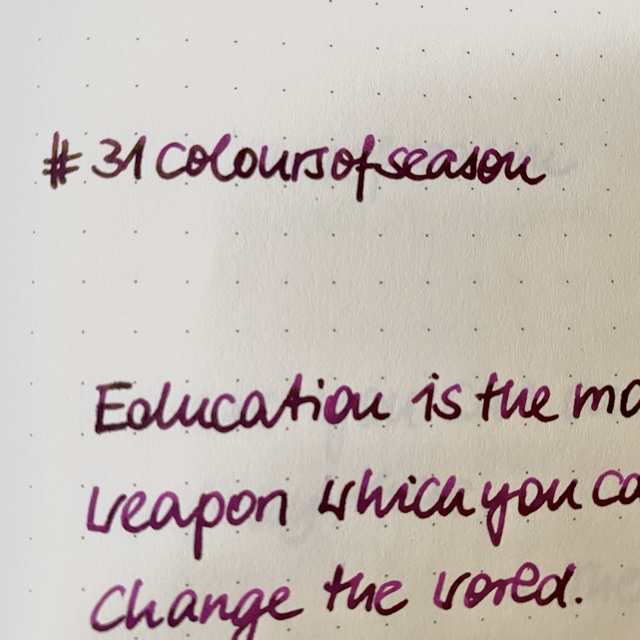 # 31 coloursofseason
Education is the mo
weapon which you ca
change the world.